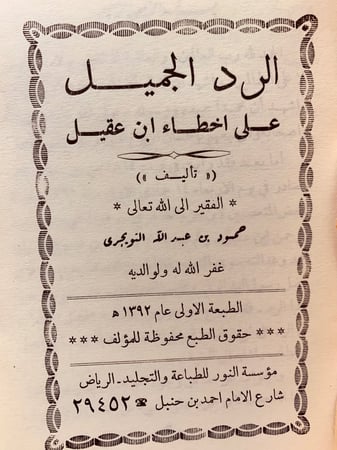 الرد الجميل
على اخطاء ابن عقيل
(« تأليف »)
* الفقير الى الله تعالى *
حمود بن عبد الله التويجرى
غفر الله له ولوالديه
الطبعة الاولى عام ١٣٩٢ هـ
*** حقوق الطبع محفوظة للمؤلف ***
مؤسسة النور للطباعة والتجليد ـ الرياض
شارع الامام احمد بن حنبل ☎ ٢٩٤٥٢